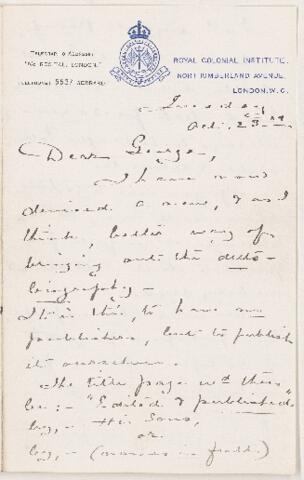 TELEGRAPHIC ADDRESS:
"RECITAL, LONDON."
TELEPHONE 5537 GERRARD.
ROYAL COLONIAL INSTITUTE,
NORTHUMBERLAND AVENUE,
LONDON, W.C.
Tuesday
Oct. 23rd
Dear George,
I have now
devised a new, & as I
think, better way of
bringing out the auto-
biography –
It is this, to have no
publishers, but to publish
it ourselves.
The title page wd then
be: – "Edited & published
by, – His Sons,
or
by, – (names in full.)